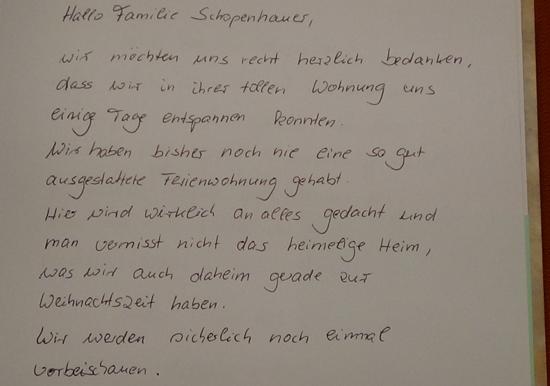 Hallo Familie Schopenhauer,
wir möchten uns recht herzlich bedanken,
dass wir in ihrer tollen Wohnung uns
einige Tage entspannen konnten.
Wir haben bisher noch nie eine so gut
ausgestattete Ferienwohnung gehabt.
Hier wird wirklich an alles gedacht und
man vermisst nicht das heimelige Heim,
was wir auch daheim gerade zur
Weihnachtszeit haben.
Wir werden sicherlich noch einmal
vorbeischauen.